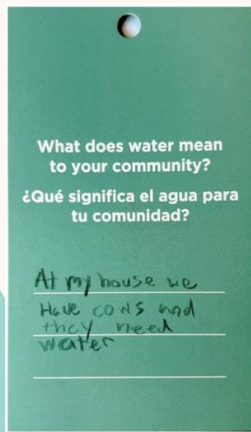 What does water mean
to your community?
¿Qué significa el agua para
tu comunidad?
At my house we
Have cows and
they need
water